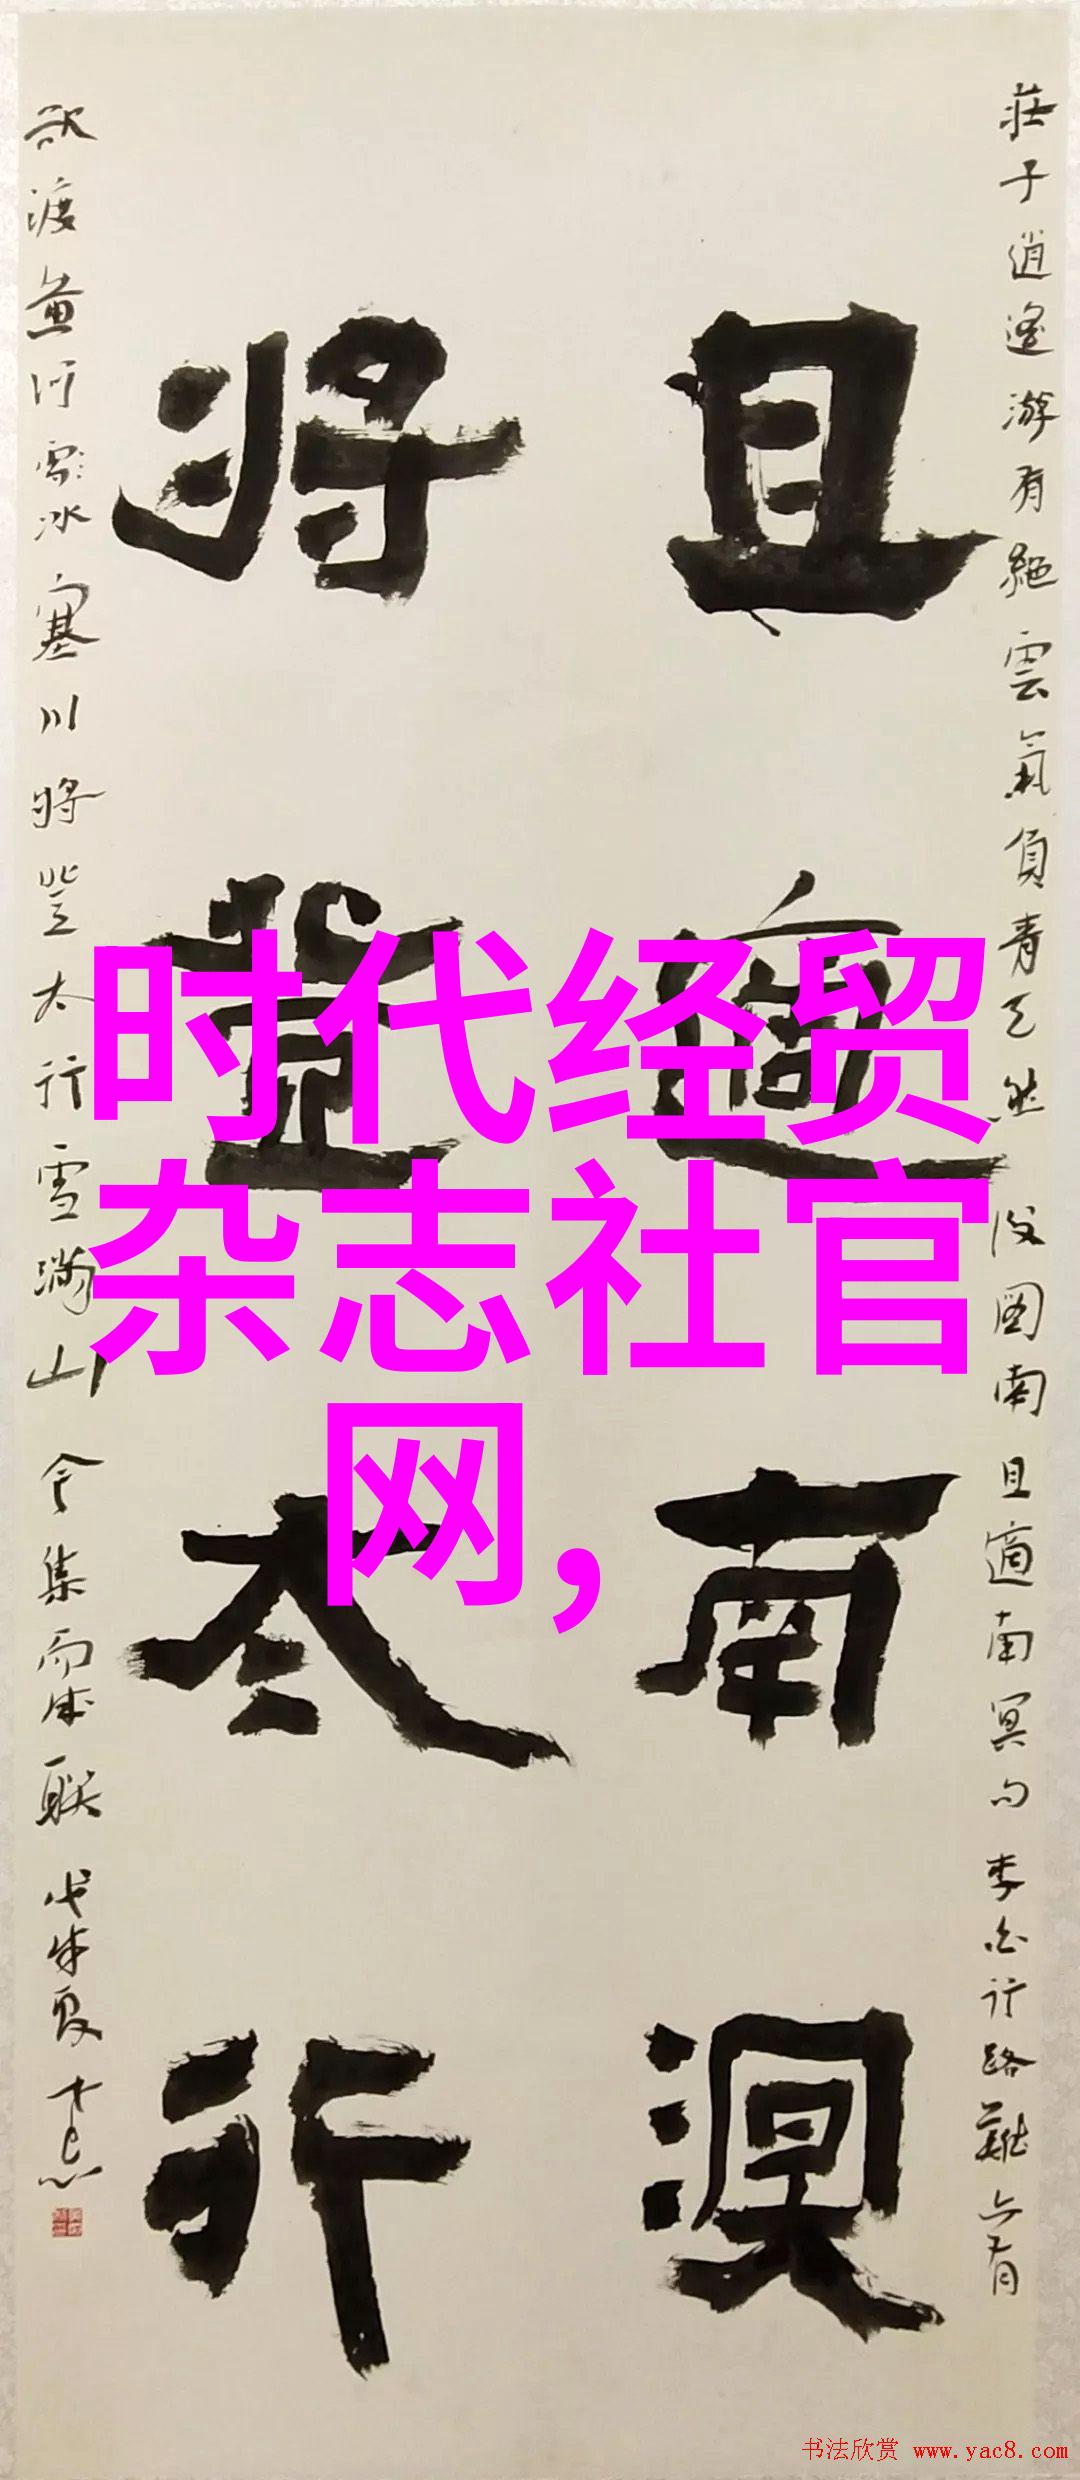 莊子逍遙游有絕雲氣負青天然後圖南且適南冥句李白行路難亦有
且適南溟
將登太行
欲渡黃河冰塞川將登太行雪滿山今集而成聯戊戌夏
时代经贸
杂志社官
网,
书法欣赏 www.yac8.com